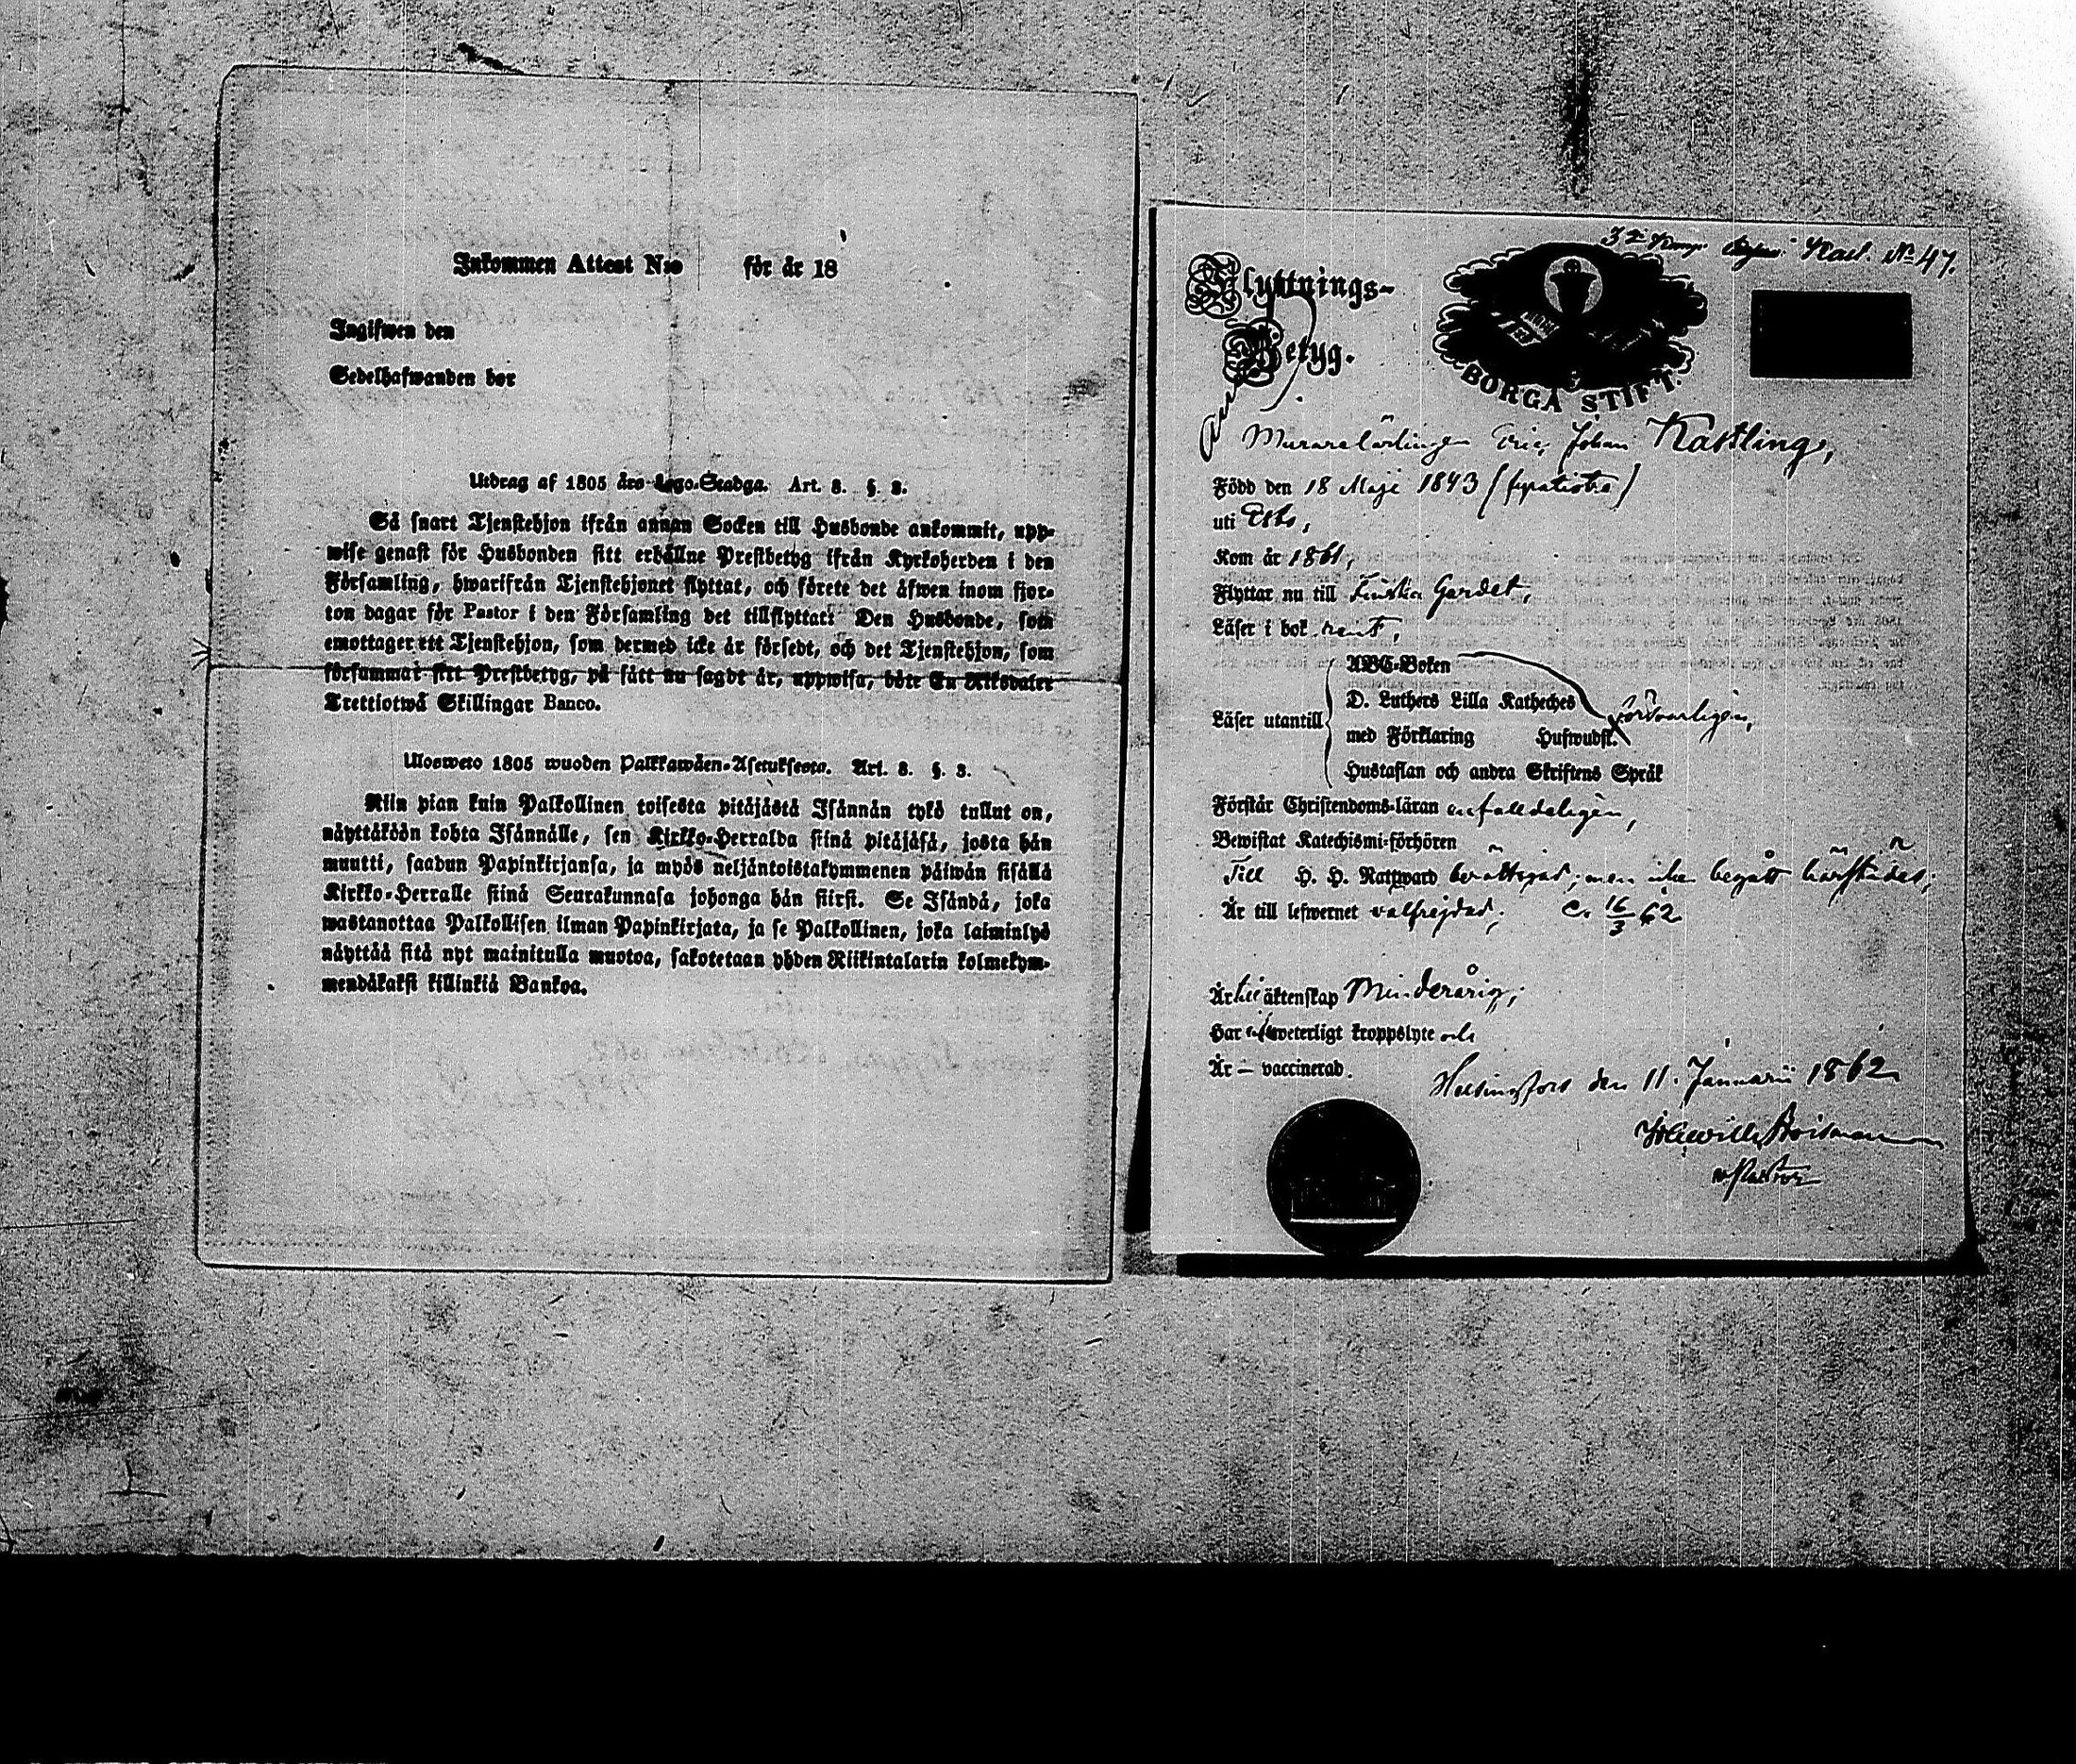 Inkommen Attest N:o för år 18
Ingifwen den
Sedelhafwanden bor
Utdrag af 1805 års Lego-Stadga. Art. 8. §. 3.
Så snart Tjenstehjon ifrån annan Socken till Husbonde ankommit, upp-
wise genast för Husbonden sitt erhållne Prestbetyg ifrån Kyrkoherden i den
Församling, hwarifrån Tjenstehjonet flyttat, och förete det äfwen inom fjor-
ton dagar för Pastor i den Församling det tillflyttat: Den Husbonde, som
emottager ett Tjenstehjon, som dermed icke är försedt, och det Tjenstehjon, som
försummat sitt Prestbetyg, på sätt nu sagdt är, uppwisa, böte En Riksdaler
Trettiotwå Skillingar Banco.
Uloswето 1805 wuoden Palkkawäen-Asetuksesta. Art. 8. §. 3.
Niin pian kuin Palkollinen toisesta pitäjästä Isännän tykö tullut on,
näyttäköön kohta Isännälle, sen Kirkko-Herralda siinä pitäjäsä, josta hän
muutti, saadun Papinkirjansa, ja myös neljäntoistakymmenen päiwän sisällä
Kirkko-Herralle siinä Seurakunnasa johonga hän siirsi. Se Isändä, joka
wastanottaa Palkollisen ilman Papinkirjata, ja se Palkollinen, joka laiminlyö
näyttää sitä nyt mainitulla muotoa, sakotetaan yhden Riikintalarin kolmekym-
mendäkaksi killinkiä Bankoa.
Kast. No 47.
Flyttnings-
Betyg.
BORGÅ STIFT.
Murarelärlingen Eric Johan Kastling,
Född den 18 Maji 1843
uti Esbo,
Kom år 1861,
Flyttar nu till Finska Gardet,
Läser i bok rent,
ABC-Boken
D. Luthers Lilla Katheches
Läser utantill försvarligen,
med Förklaring Hufwudst.
Hustaflan och andra Skriftens Språk
Förstår Christendoms-läran enfaldeligen,
Bewistat Katechismi-förhören
Till H. H. Nattward berättigad, men icke begått härstädes;
Är till lefwernet välfrejdad; C. 16/3 62
Är till äktenskap Minderårig;
Har icke weterligt kroppslyte och
Är – vaccinerad.
Helsingfors den 11 Januarii 1862
v. Pastor